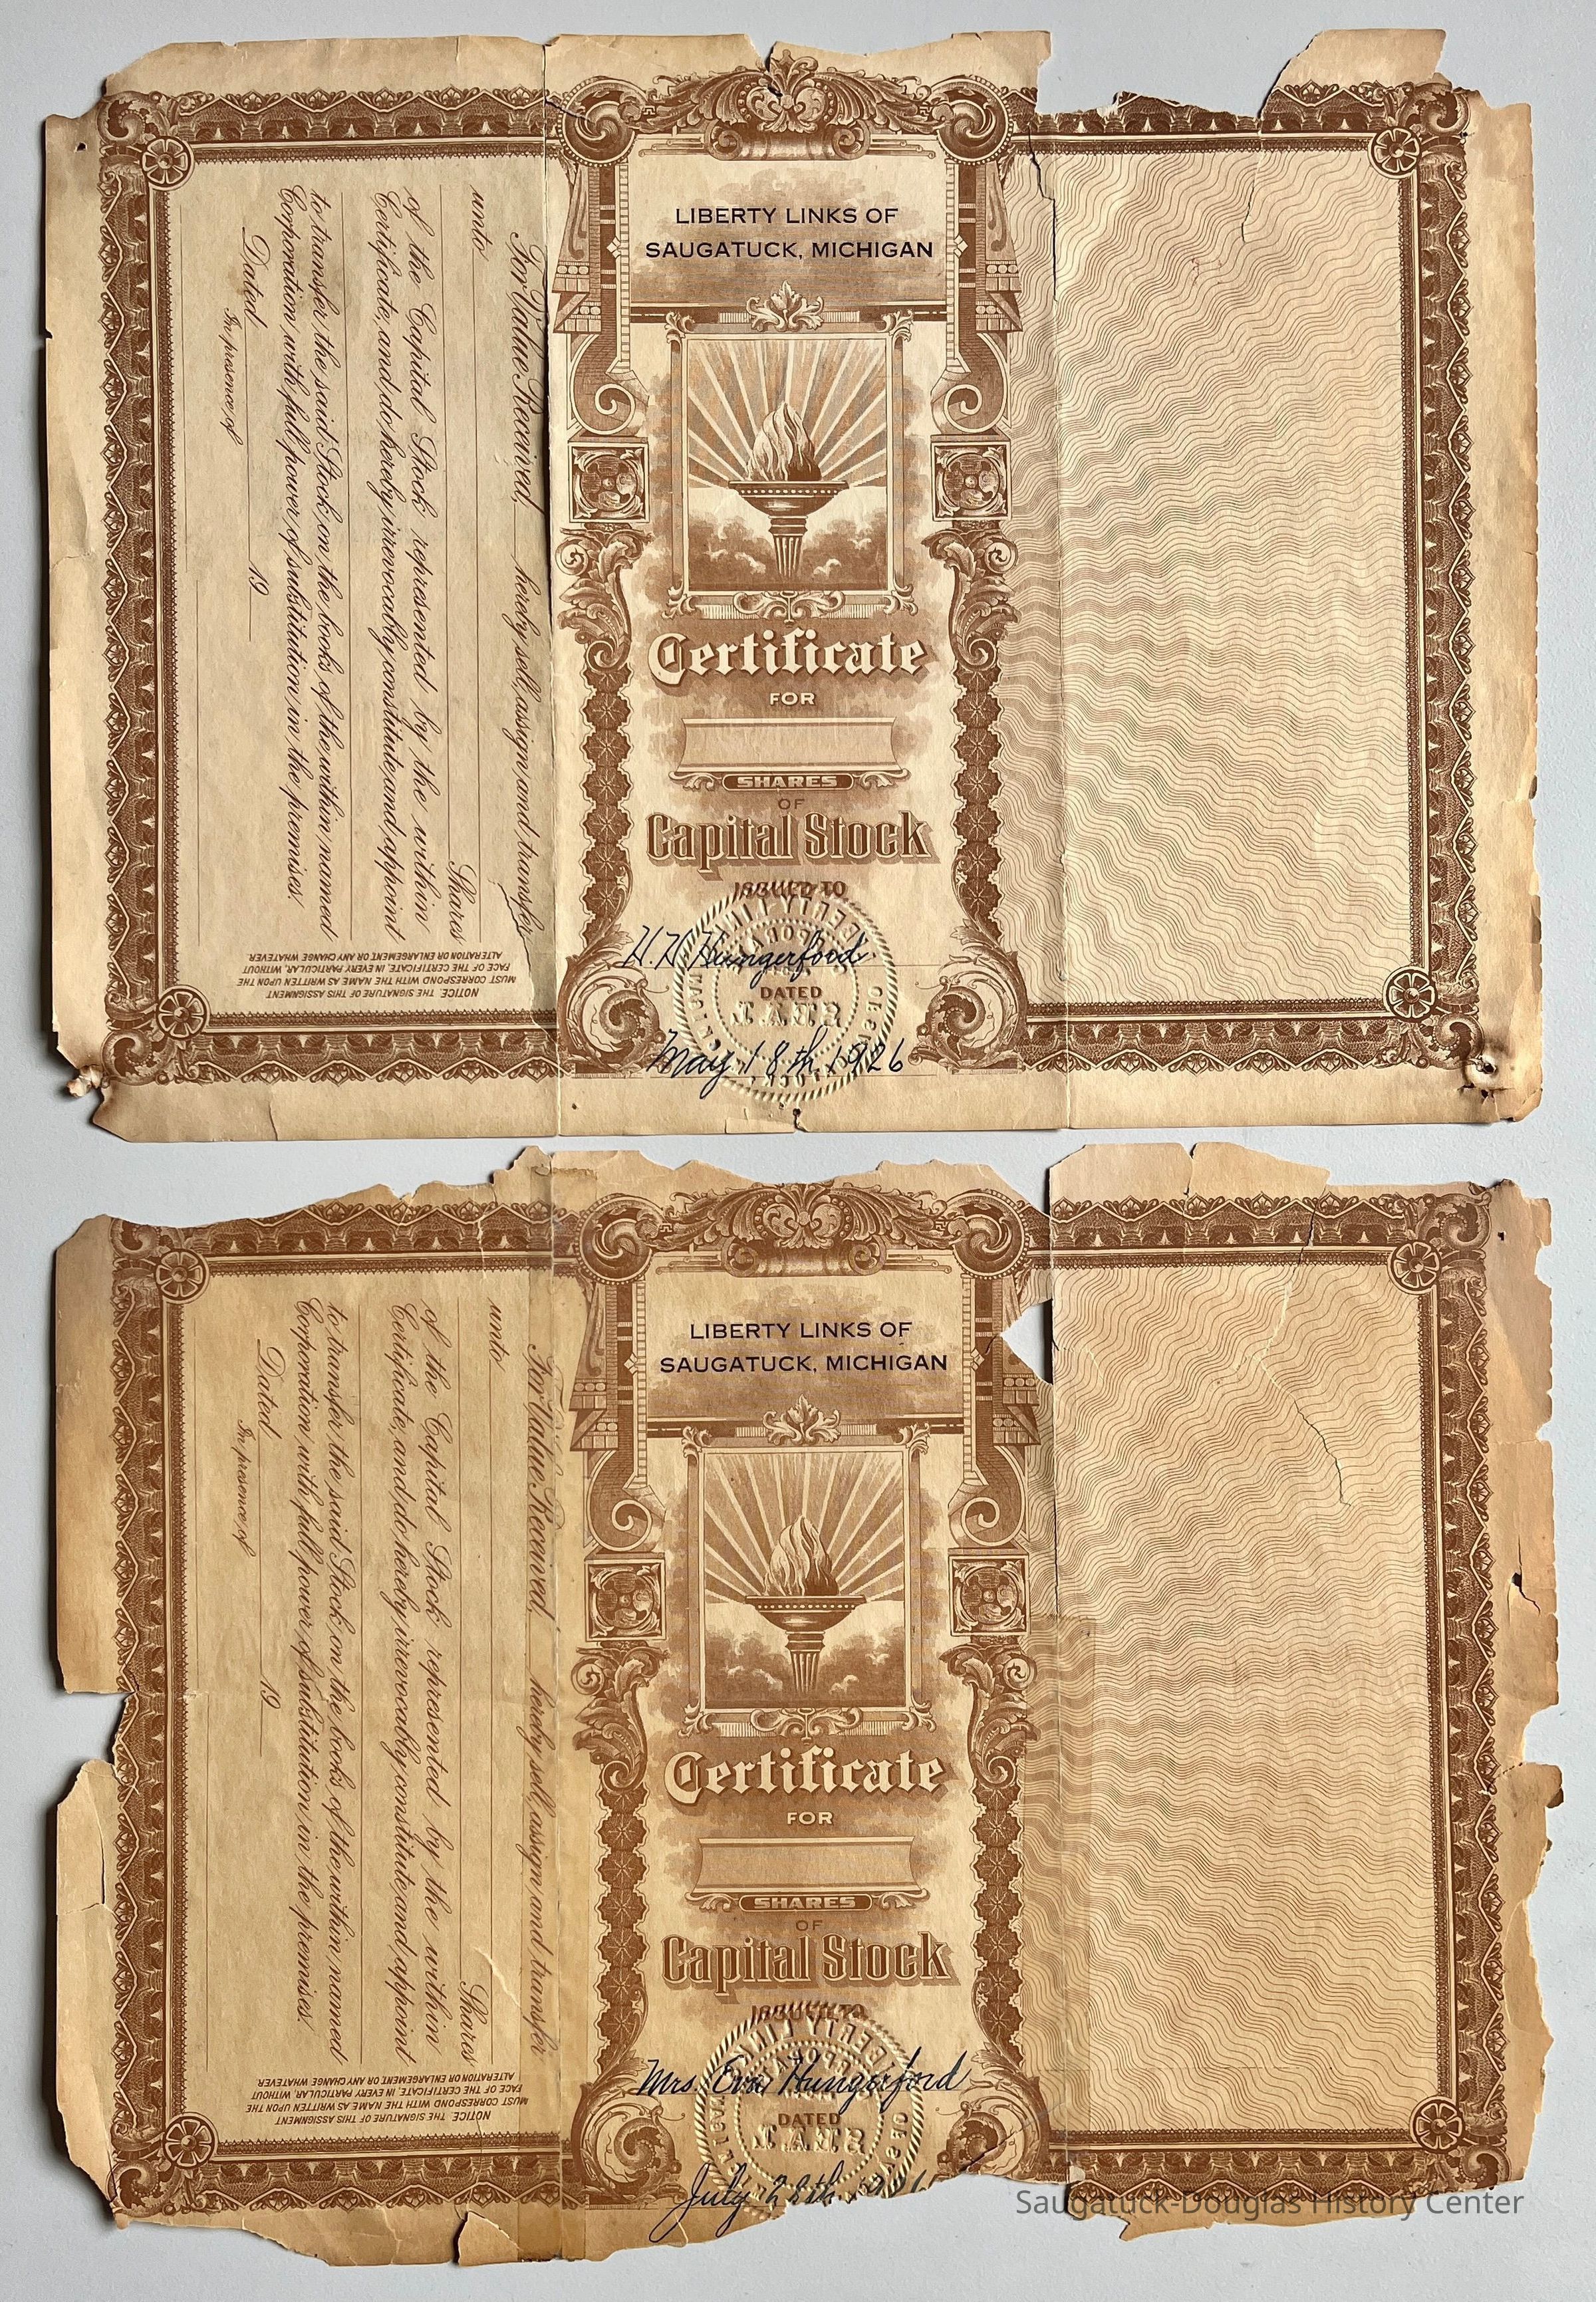 For Value Received, hereby sell, assign and transfer
unto
Shares
of the Capital Stock represented by the within
Certificate, and do hereby irrevocably constitute and appoint
to transfer the said Stock on the books of the within named
Corporation with full power of substitution in the premises.
Dated 19
In presence of
NOTICE. THE SIGNATURE OF THIS ASSIGNMENT
MUST CORRESPOND WITH THE NAME AS WRITTEN UPON THE
FACE OF THE CERTIFICATE, IN EVERY PARTICULAR, WITHOUT
ALTERATION OR ENLARGEMENT, OR ANY CHANGE WHATEVER
LIBERTY LINKS OF
SAUGATUCK, MICHIGAN
Certificate
FOR
SHARES
OF
Capital Stock
ISSUED TO
H. H. Hungerford
DATED
May 18th, 1926
For Value Received, hereby sell, assign and transfer
unto
Shares
of the Capital Stock represented by the within
Certificate, and do hereby irrevocably constitute and appoint
to transfer the said Stock on the books of the within named
Corporation with full power of substitution in the premises.
Dated 19
In presence of
NOTICE. THE SIGNATURE OF THIS ASSIGNMENT
MUST CORRESPOND WITH THE NAME AS WRITTEN UPON THE
FACE OF THE CERTIFICATE, IN EVERY PARTICULAR, WITHOUT
ALTERATION OR ENLARGEMENT, OR ANY CHANGE WHATEVER
LIBERTY LINKS OF
SAUGATUCK, MICHIGAN
Certificate
FOR
SHARES
OF
Capital Stock
ISSUED TO
Mrs. Eva Hungerford
DATED
July 1926
Saugatuck-Douglas History Center